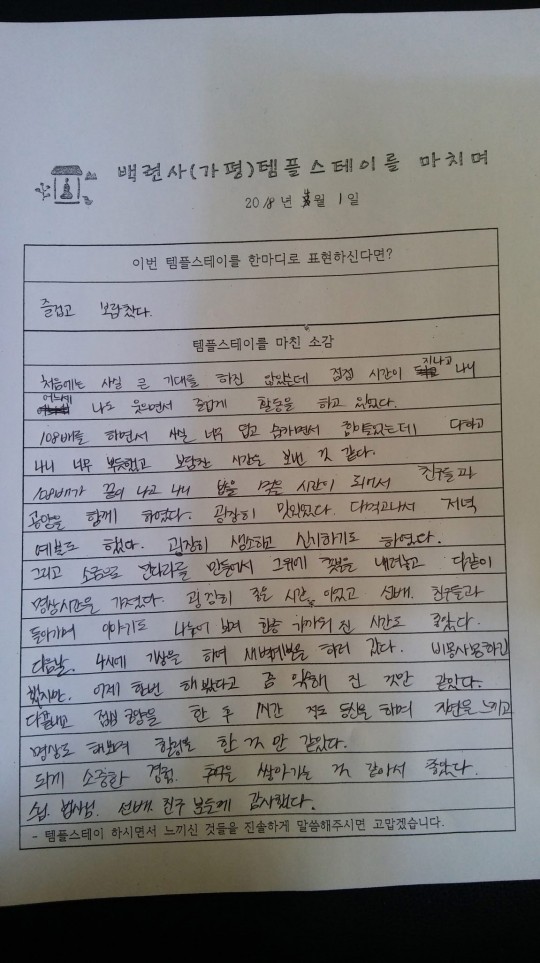 백련사(가평)템플스테이를 마치며
2018년 월 1일
이번 템플스테이를 한마디로 표현하신다면?
즐겁고 보람찼다.
템플스테이를 마친 소감
처음에는 사실 큰 기대를 하진 않았는데 점점 시간이 지나고 나니
어느새 나도 웃으면서 즐겁게 활동을 하고 있었다.
108배를 하면서 사실 너무 덥고 습하면서 힘들었는데 다하고
나니 너무 뿌듯했고 보람찬 시간을 보낸 것 같다.
108배가 끝이 나고 나니 밥을 먹을 시간이 되어서 친구들과
공양을 함께 하였다. 굉장히 맛있었다. 다먹고나서 저녁
예불도 했다. 굉장히 생소하고 신기하기도 하였다.
그리고 소금으로 만다라를 만들어서 그위에 촛불을 내려놓고 다같이
명상시간을 가졌다. 굉장히 좋은 시간 이었고 선배, 친구들과
돌아가며 이야기도 나누어 보며 한층 가까워 진 시간도 좋았다.
다음날, 4시에 기상을 하여 새벽예불을 하러 갔다. 비몽사몽하긴
했지만, 이제 한번 해 봤다고 좀 익숙해 진 것만 같았다.
다끝내고 아침 공양을 한 후 1시간 정도 등산을 하며 자연을 느끼고
명상도 해보며 힐링도 한 것 만 같았다.
되게 소중한 경험, 추억을 쌓아가는 것 같아서 좋았다.
스님, 법사님, 선배, 친구 분들께 감사했다.
- 템플스테이 하시면서 느끼신 것들을 진솔하게 말씀해주시면 고맙겠습니다.